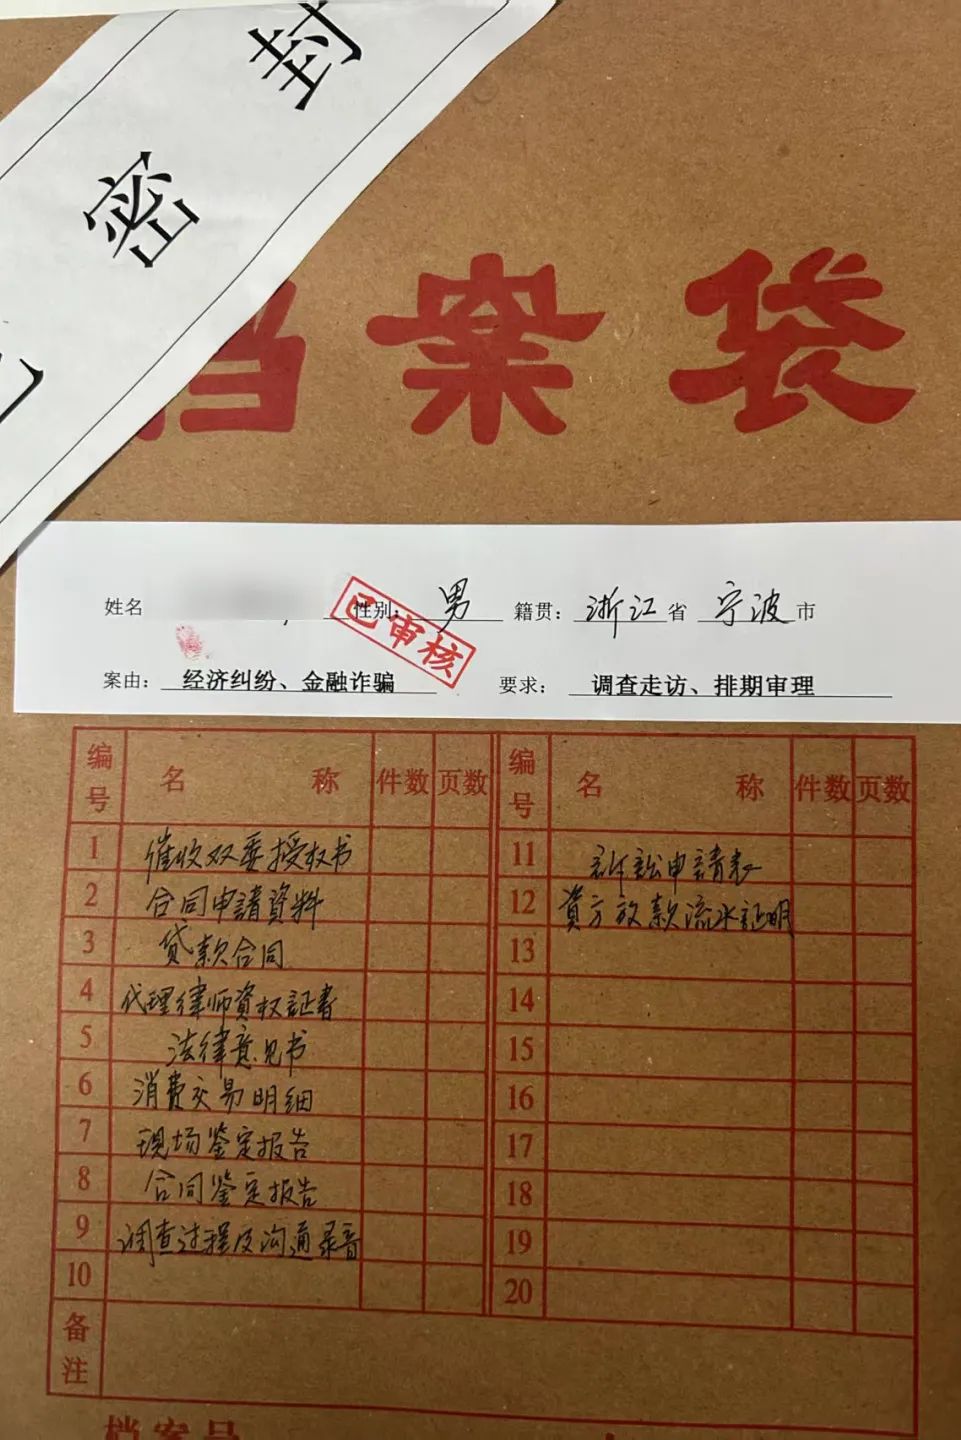 封
密
档案袋
姓名 性别: 男 籍贯: 浙江省 宁波市
已审核
案由: 经济纠纷、金融诈骗 要求: 调查走访、排期审理
编号 名称 件数 页数 编号 名称 件数 页数
1 催收双委授权书 11 訴訟申請表
2 合同申請資料 12 資方放款流水証明
3 贷款合同 13
4 代理律师資权証書 14
5 法律意见书 15
6 消费交易明细 16
7 现场鉴定报告 17
8 合同鉴定报告 18
9 调查过程及沟通录音 19
10 20
备注
档案号